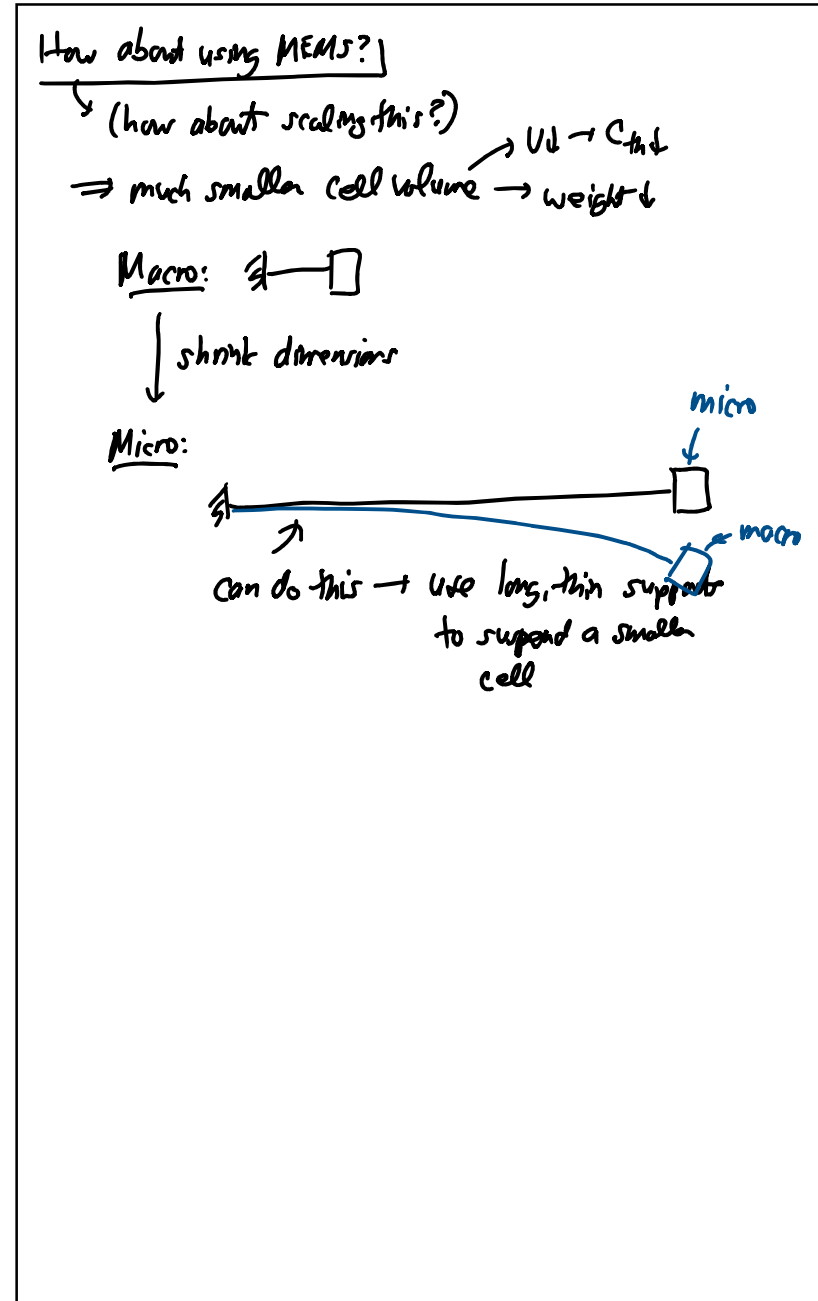 How about using MEMS?
(how about scaling this?)
⇒ much smaller cell volume → V↓ → C_th↓
→ weight↓
Macro:
shrink dimensions
Micro:
micro
macro
can do this → use long, thin supports
to suspend a smaller
cell